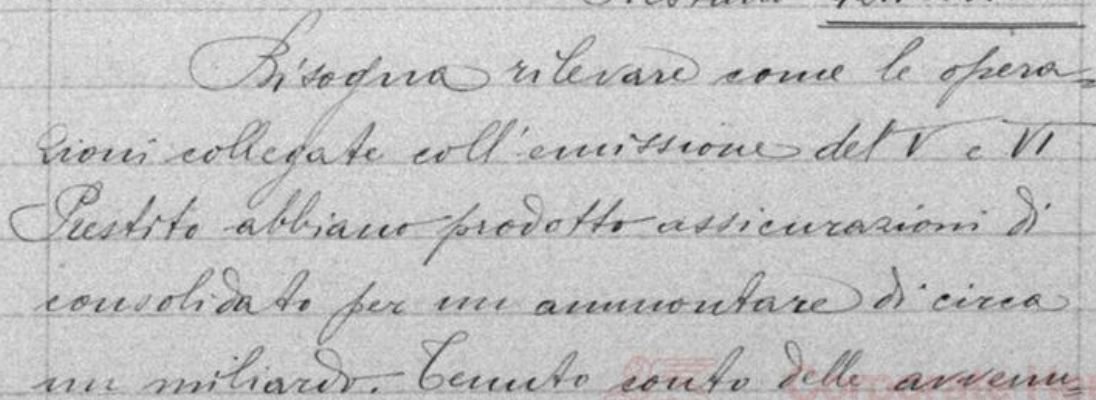 Bisogna rilevare come le opera=
zioni collegate coll'emissione del V e VI
Prestito abbiano prodotto assicurazioni di
consolidato per un ammontare di circa
un miliardo. Tenuto conto delle avvenu=